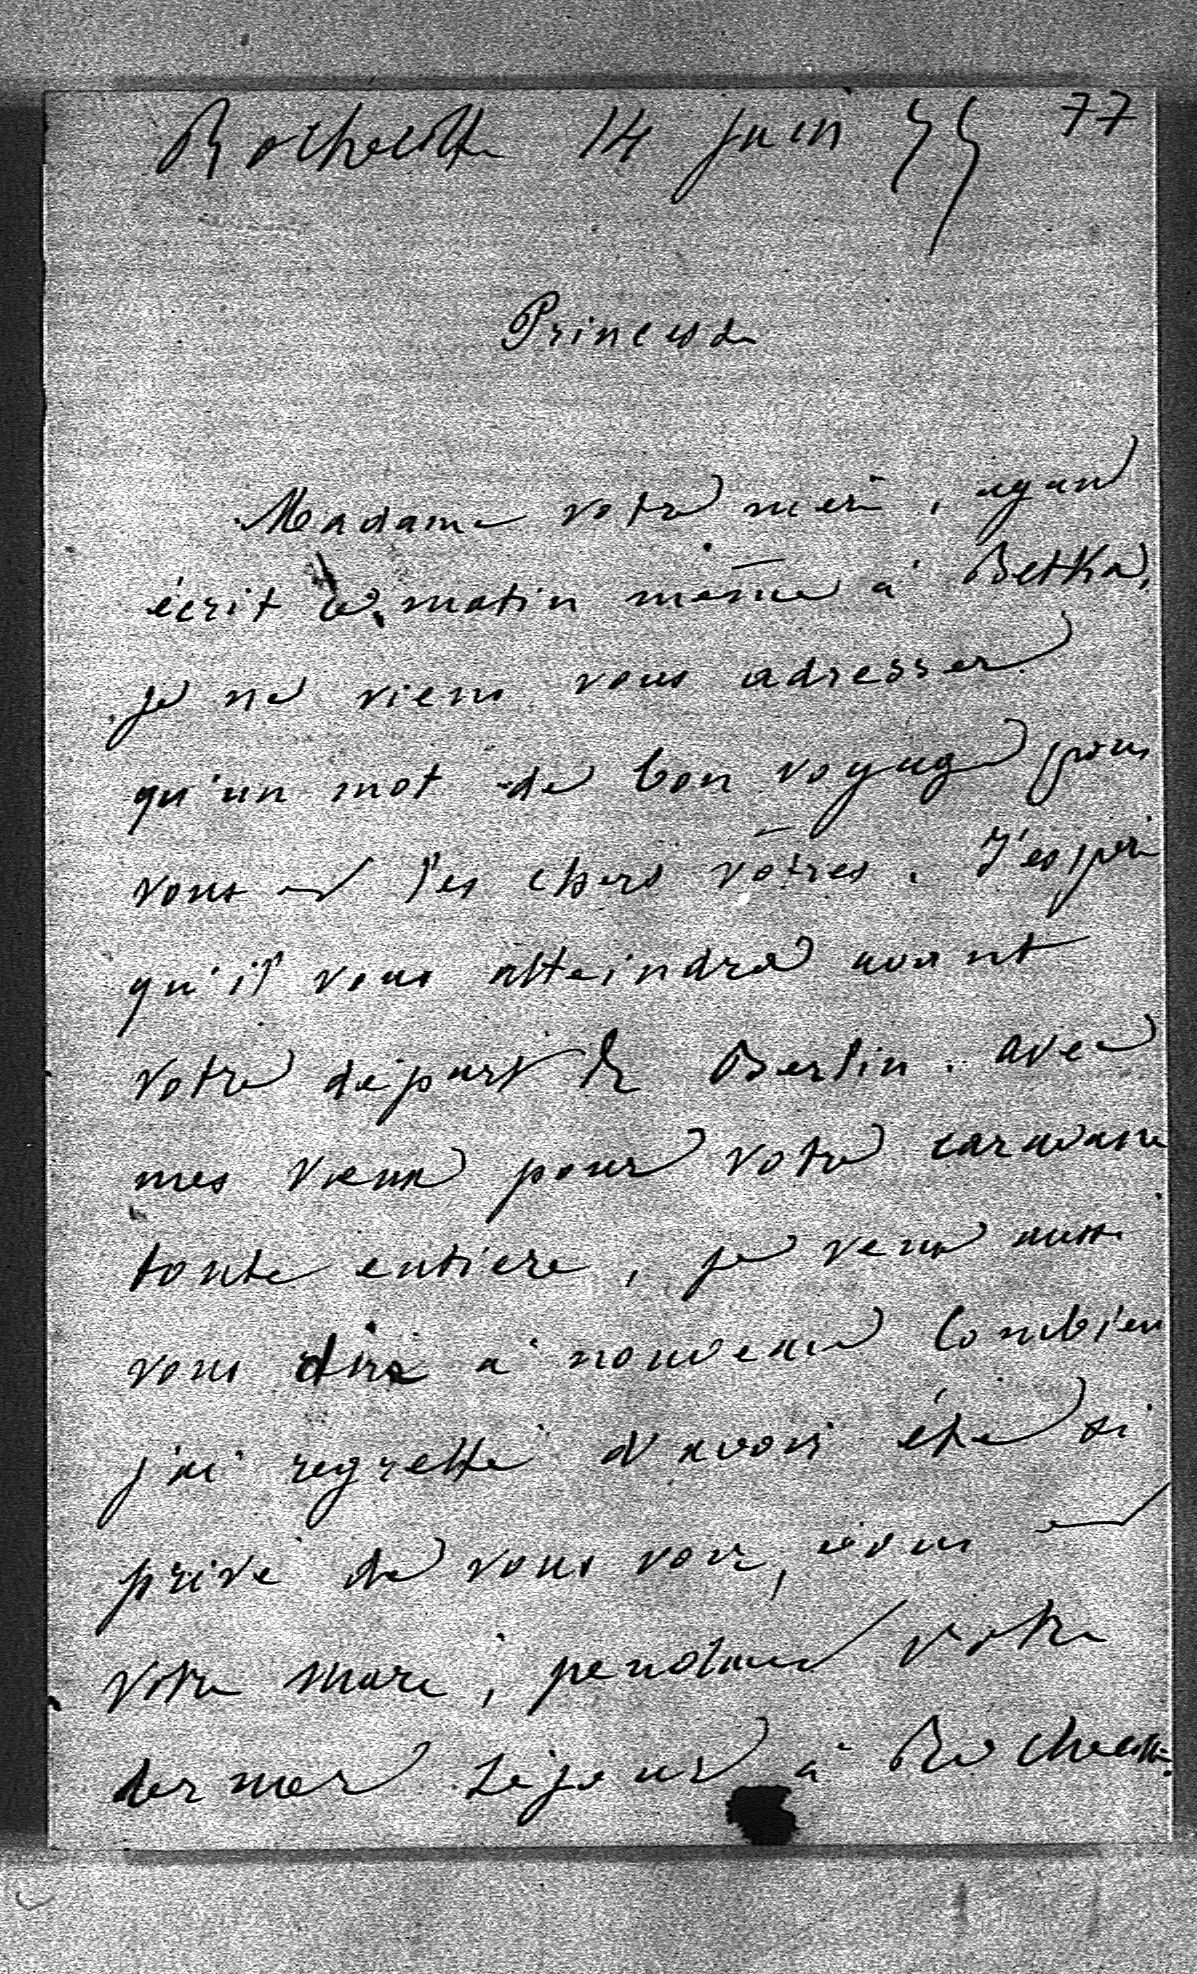 Rochecotte 14 juin 55 77
Princesse
Madame votre mère, ayant
écrit ce matin même à Betka,
je ne viens vous adresser
qu'un mot de bon voyage pour
vous et les chers vôtres. J'espère
qu'il vous atteindra avant
votre départ de Berlin. avec
mes vœux pour votre caravane
toute entiere, je veux aussi
vous dire à nouveau combien
j'ai regretté d'avoir été si
privé de vous voir, vous et
votre mari, pendant votre
dernier séjour à Rochecotte.